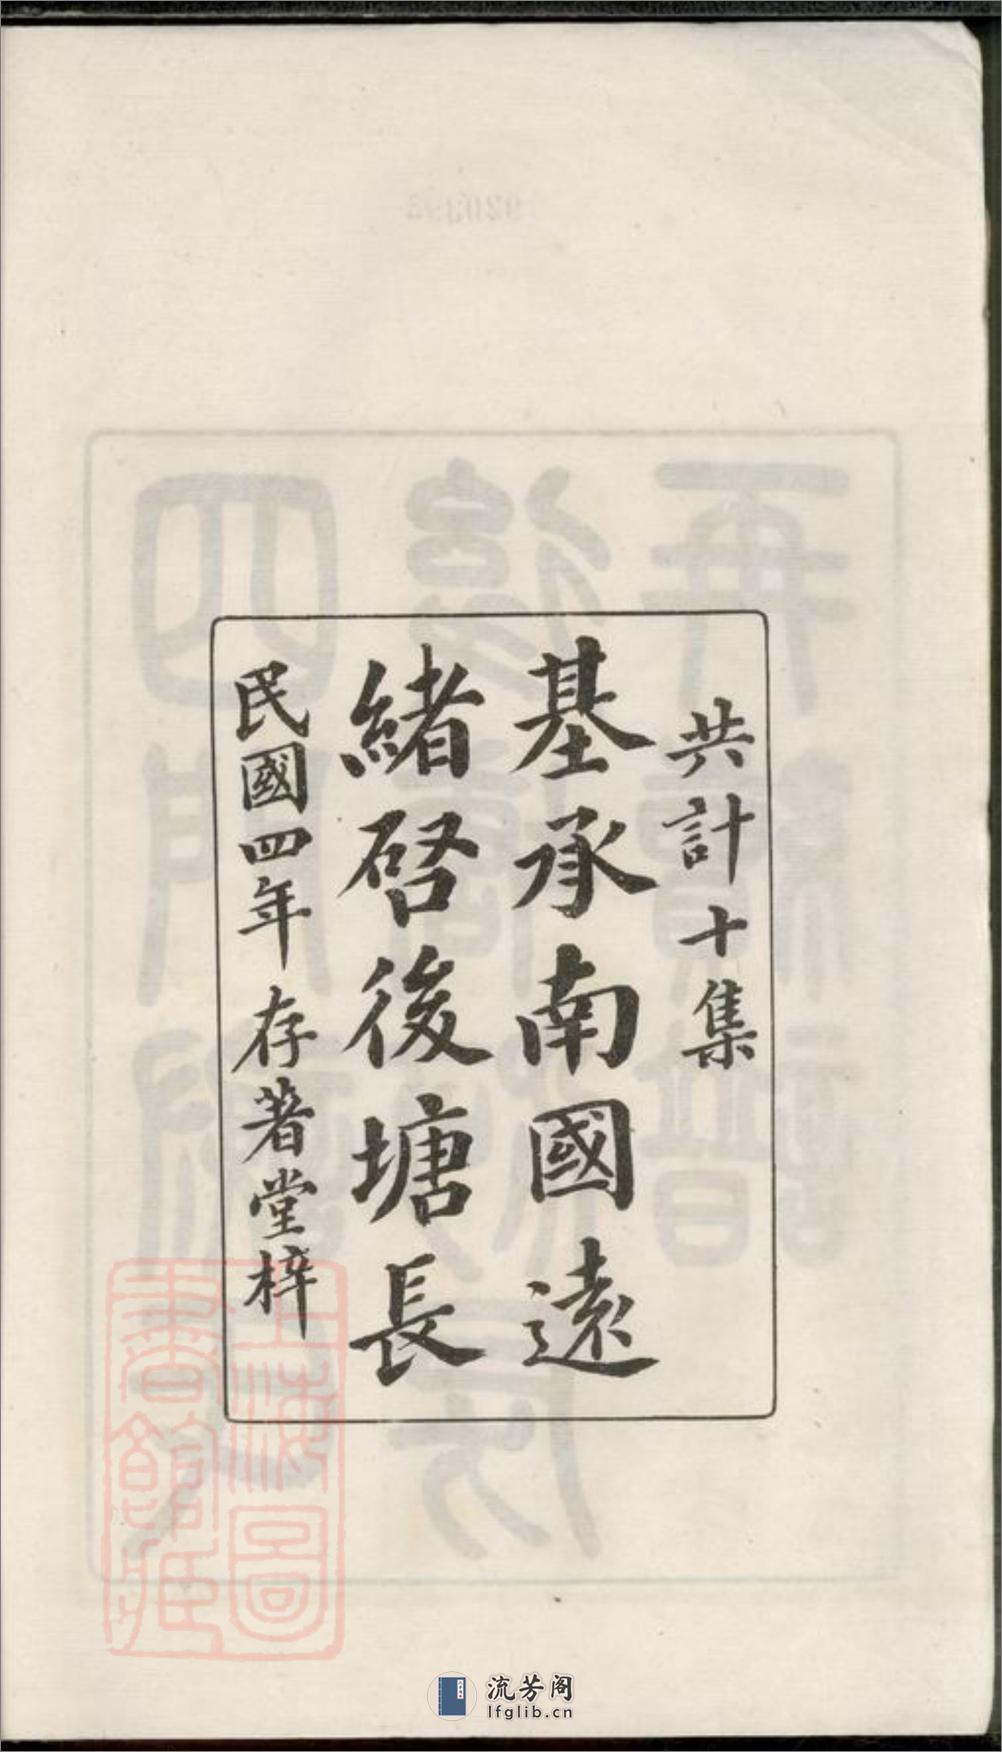 共計十集
基承南國遠
緒啓後塘長
民國四年 存著堂梓
上海圖書館藏
流芳阁
lfglib.cn